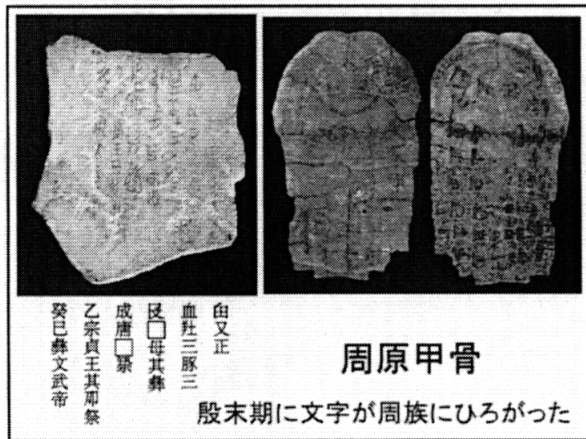 癸巳彝文武帝
乙宗貞王其卲祭
成唐□
□母其彝
血三豚三
又正
周原甲骨
殷末期に文字が周族にひろがった